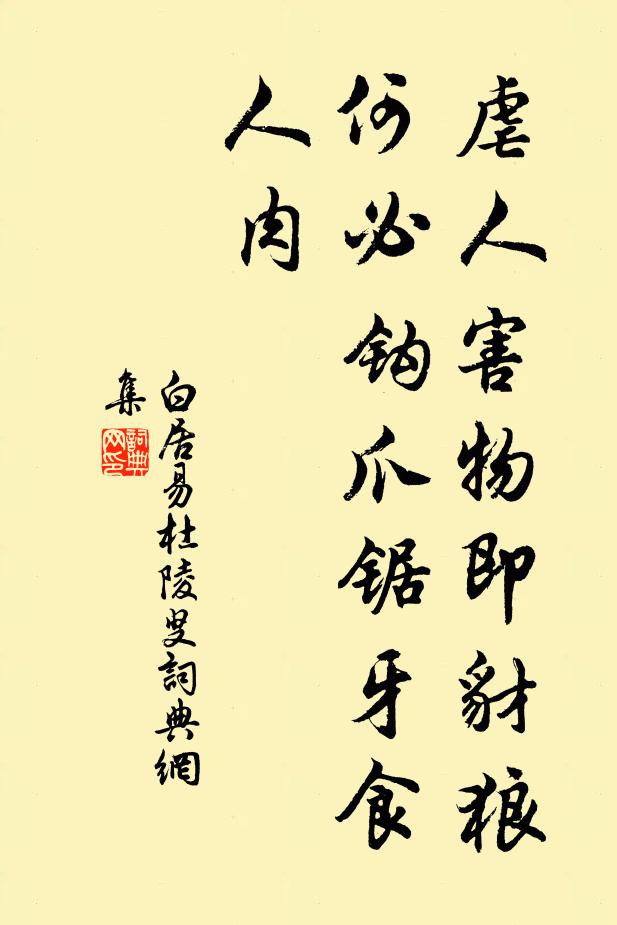 虐人害物即豺狼
何必钩爪锯牙食
人肉
白居易杜陵叟詞典網
集
詞典网印